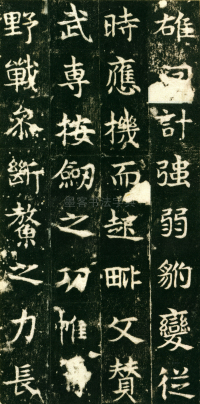 雄計強弱豹變從
時應機而趍毗文贊
武專按劒之功帷
野戰斷鰲之力長